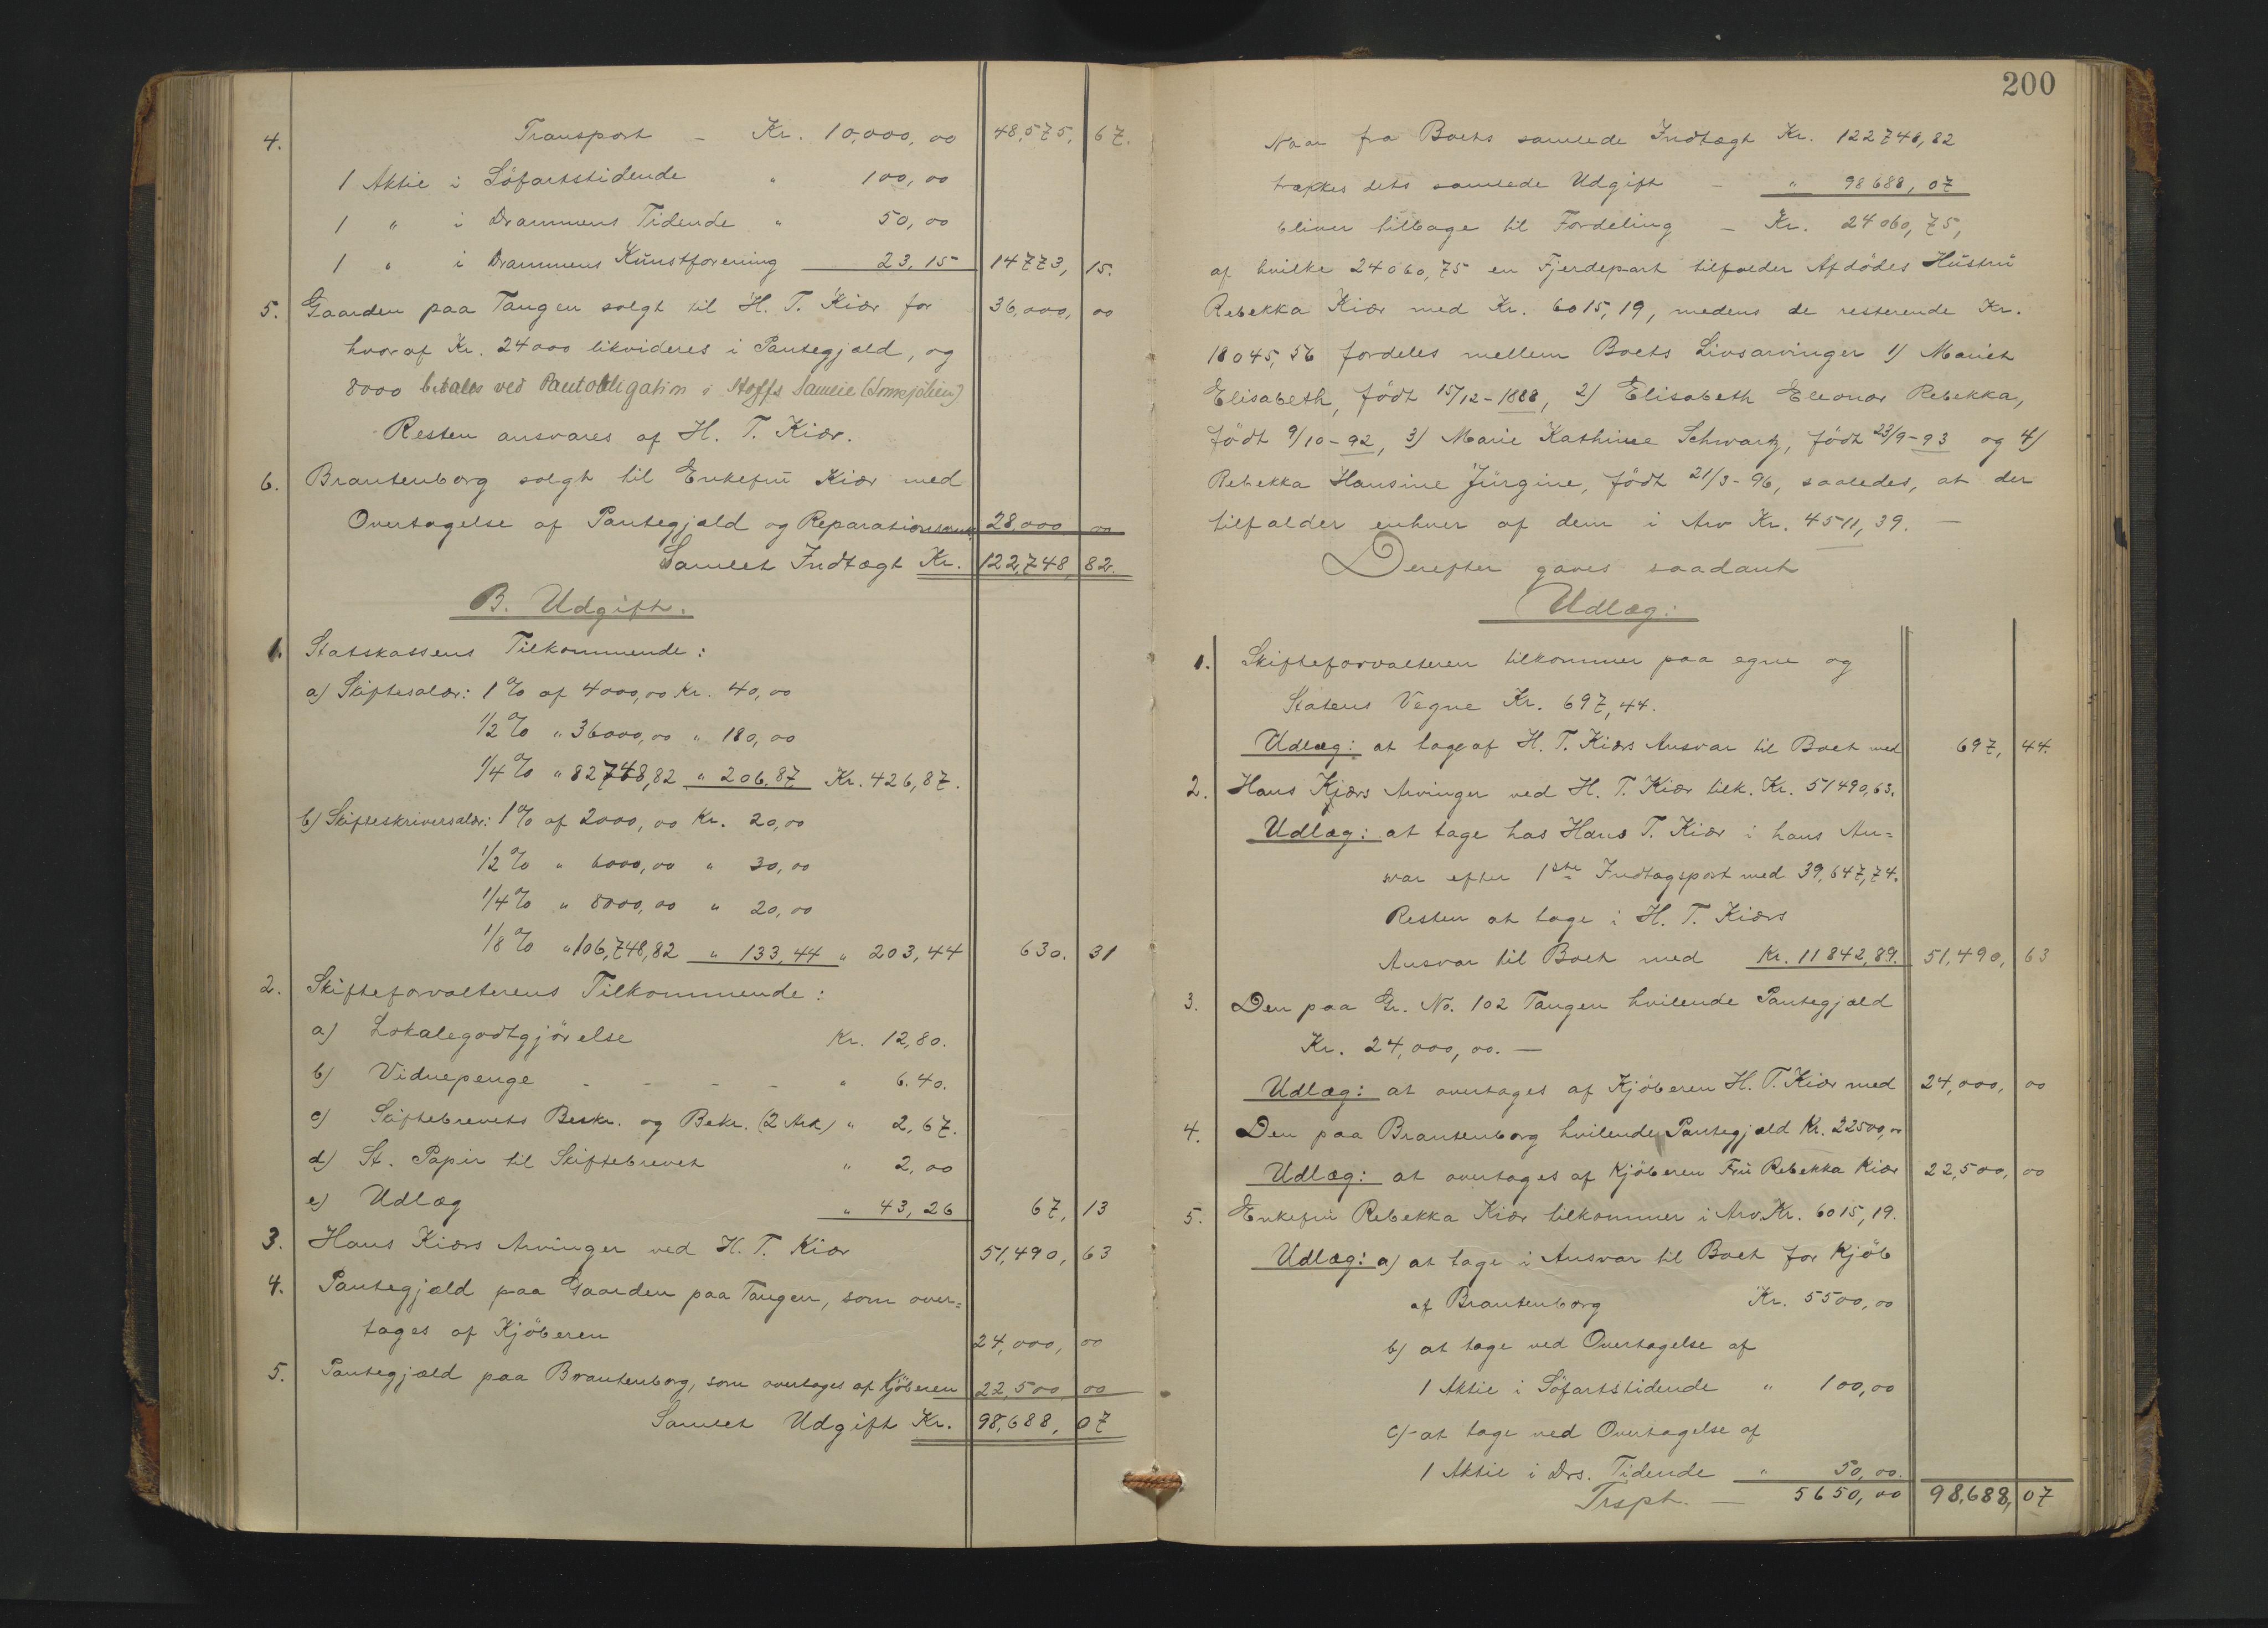 4. Transport – Kr. 10,000,00 48,575, 67.
1 Aktie i Söfartstidende " 100,00
1 " i Drammens Tidende " 50,00
1 " i Drammens Kunstforening 23,15 14773, 15.
5. Gaarden paa Tangen solgt til H. T. Kiær for 36,000, 00
hvoraf Kr. 24000 likvideres i Pantegjæld, og
8000 betales ved Pantobligation i Stoffs Sameie
Resten ansvares af H. T. Kiær.
6. Brantenborg solgt til Enkefru Kiær med
Overtagelse af Pantegjæld og 28,000 00
Samlet Indtægt Kr. 122,748, 82.
B. Udgift.
1. Statskassens Tilkommende:
a) Skiftesalær: 1% af 4000,00 Kr. 40,00
1/2% " 36000,00 " 180,00
1/4% " 82748,82 " 206,87 Kr. 426,87.
b) Skifteskriversalær: 1% af 2000,00 Kr. 20,00
1/2% " 6000,00 " 30,00
1/4% " 8000,00 " 20,00
1/8% " 106,748,82 " 133,44 " 203,44 630. 31
2. Skifteforvalterens Tilkommende:
a) Lokalegodtgjörelse Kr. 12,80.
b) Vidnepenge - - - - " 6.40.
c) Skiftebrevets Beskr. og Bekr. (2 Ark) " 2,67.
d) St. Papir til Skiftebrevet " 2,00
e) Udlæg " 43,26 67, 13
3. Hans Kiærs Arvinger ved H. T. Kiær 51,490, 63
4. Pantegjæld paa Gaarden paa Tangen, som over=
tages af Kjöberen 24,000, 00
5. Pantegjæld paa Brantenborg, som overtages af Kjöberen 22,500 00
Samlet Udgift Kr. 98,688, 07
200
Naar fra Boets samlede Indtægt Kr. 122748,82
trækkes dets samlede Udgift – " 98688,07
bliver tilbage til Fordeling – Kr. 24060,75,
af hvilke 24060,75 en Fjerdepart tilfalder Afdödes Hustru
Rebekka Kiær med Kr. 6015,19, medens de resterende Kr.
18045,56 fordeles mellem Boets Livsarvinger 1) Marich
Elisabeth, född 15/12-1888, 2) Elisabeth Eleonor Rebekka,
födt 9/10-92, 3) Marie Kathinee Schwartz, födt 23/9-93 og 4)
Rebekka Hansine Jürgine, födt 21/3-96, saaledes, at der
tilfalder enhver af dem i Arv Kr. 4511,39. –
Derefter gaves saadant
Udlæg:
1. Skifteforvalteren tilkommer paa egne og
Statens Vegne Kr. 697,44.
Udlæg: at tage af H. T. Kiærs Ansvar til Boet med 697, 44.
2. Hans Kjærs Arvinger ved H. T. Kiær tilk. Kr. 51490,63.
Udlæg: at tage hos Hans T. Kiær i hans An=
svar efter 1ste Indtægspost med 39,647,74.
Resten at tage i H. T. Kiærs
Ansvar til Boet med Kr. 11842,89. 51,490, 63
3. Den paa Gr. No. 102 Tangen hvilende Pantegjæld
Kr. 24,000,00. –
Udlæg: at overtages af Kjöberen H. T. Kiær med 24,000, 00
4. Den paa Brantenborg hvilende Pantegjæld Kr. 22500,00
Udlæg: at overtages af Kjöberen Fru Rebekka Kiær 22,500, 00
5. Enkefru Rebekka Kiær tilkommer i Arv. Kr. 6015,19.
Udlæg: a) at tage i Ansvar til Boet for Kjöb
af Brantenborg Kr. 5500,00
b) at tage ved Overtagelse af
1 Aktie i Söfartstidende " 100,00
c) at tage ved Overtagelse af
1 Aktie i Drs. Tidende " 50,00.
Trspt. – 5650,00 98,688, 07